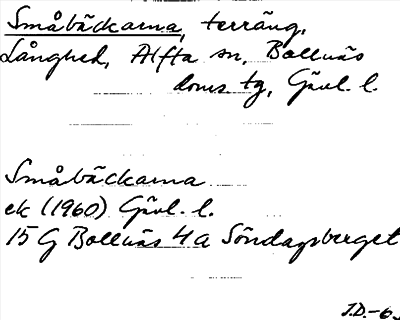 Småbäckarna, terräng,
Långhed, Alfta sn, Bollnäs
doms. tg, Gävl. l.
Småbäckarna
ek (1960) Gävl. l.
15 G Bollnäs 4a Söndagsberget
J.D.-6